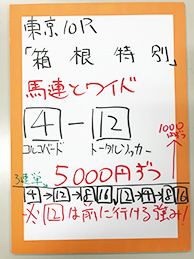 東京10R
「箱根特別」
馬連とワイド
4－12
コルコバード トータルソッカー
5000円ずつ
100円ずつ
3連単
4→12→8 16、12→4→8 16
※12は前に行ける強み！